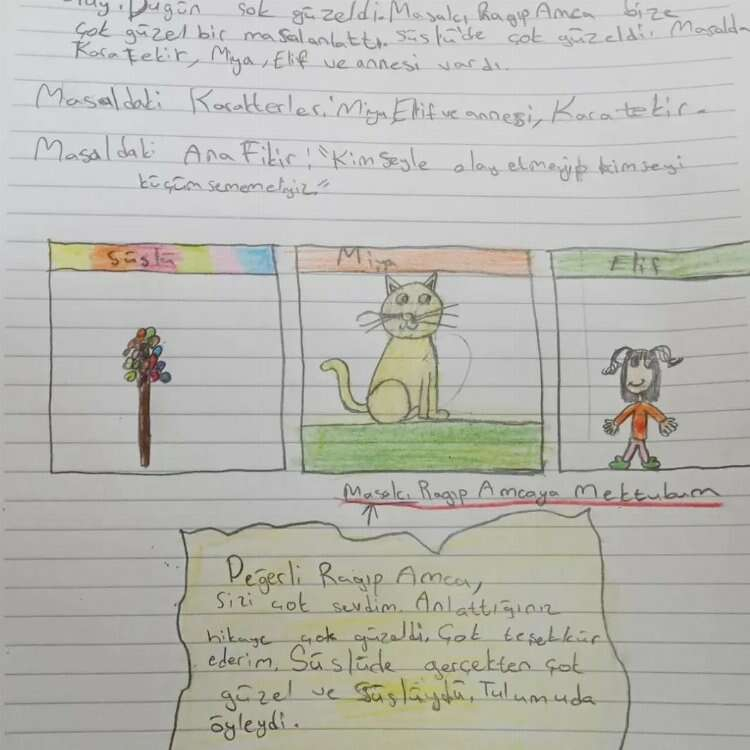 Bugün şok güzeldi. Masalcı Ragıp Amca bize
çok güzel bir masal anlattı. Süslü'de çok güzeldi. Masalda
Kara tekir, Miya, Elif ve annesi vardı.
Masaldaki Karakterler: Miya, Elif ve annesi, Kara tekir.
Masaldaki Ana Fikir: "Kimseyle alay etmeyip kimseyi
küçümsememeliyiz."
Süslü
Miya
Elif
Masalcı Ragıp Amcaya Mektubum
Değerli Ragıp Amca,
Sizi çok sevdim. Anlattığınız
hikaye çok güzeldi. Çok teşekkür
ederim. Süslüde gerçekten çok
güzel ve süslüydü. Tulumuda
öyleydi.